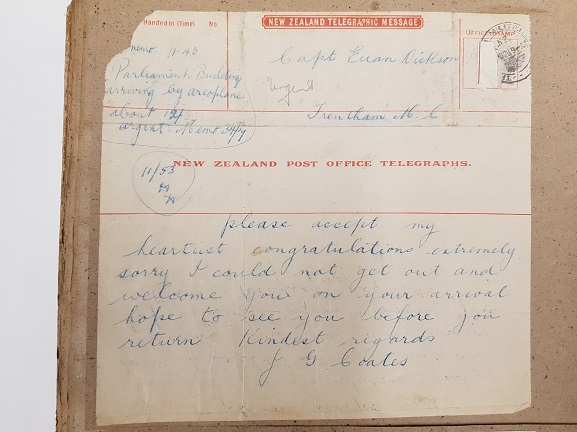 Handed in (Time) No.
NEW ZEALAND TELEGRAPHIC MESSAGE
memo. 11-45
Parliament Building
arriving by aeroplane
about 12/
urgent Memo
Capt Euan Dickson
Urgent
Trentham M. C
11/53
NEW ZEALAND POST OFFICE TELEGRAPHS.
please accept my
heartiest congratulations extremely
sorry I could not get out and
welcome you on your arrival
hope to see you before you
return Kindest regards
J G Coates